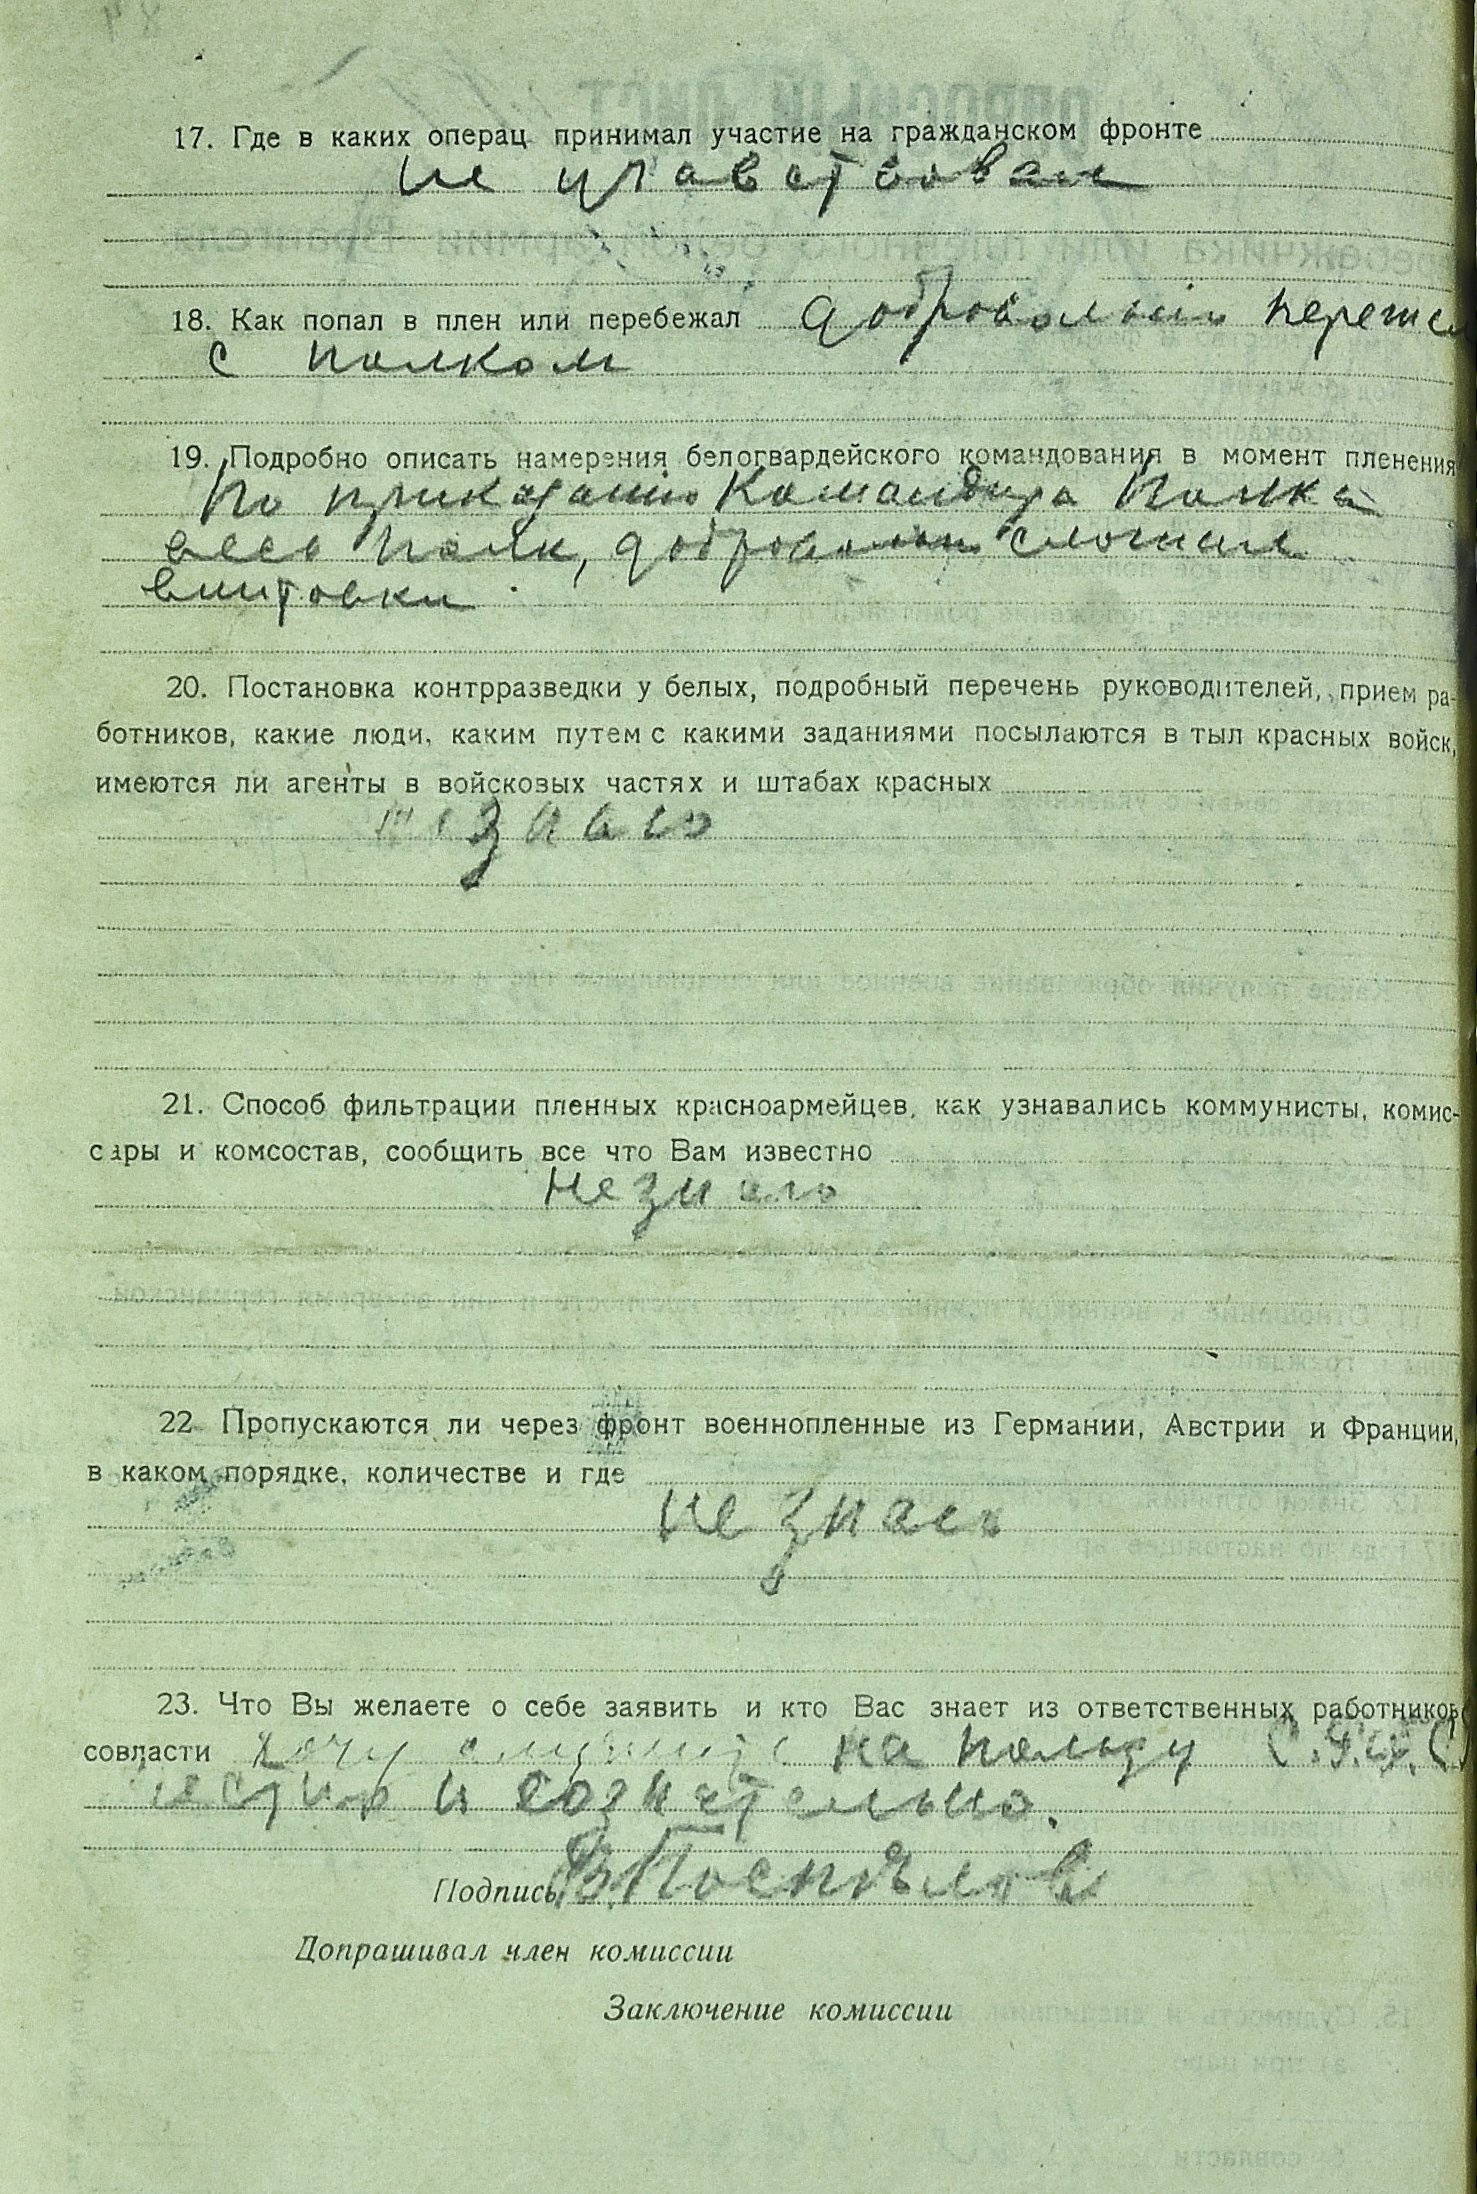 17. Где в каких операц. принимал участие на гражданском фронте
не участвовал
18. Как попал в плен или перебежал добровольно перешел
с полком
19. Подробно описать намерения белогвардейского командования в момент пленения
По приказанию Командира Полка
весь полк, добровольно сложил
винтовки
20. Постановка контрразведки у белых, подробный перечень руководителей, прием ра-
ботников, какие люди, каким путем с какими заданиями посылаются в тыл красных войск,
имеются ли агенты в войсковых частях и штабах красных
не знаю
21. Способ фильтрации пленных красноармейцев, как узнавались коммунисты, комис-
сары и комсостав, сообщить все что Вам известно
Не знаю
22 Пропускаются ли через фронт военнопленные из Германии, Австрии и Франции,
в каком порядке, количестве и где
не знаю
23. Что Вы желаете о себе заявить и кто Вас знает из ответственных работников
совласти хочу служить на пользу
честно и сознательно.
Подпись ВПоспѣлов
Допрашивал член комиссии
Заключение комиссии